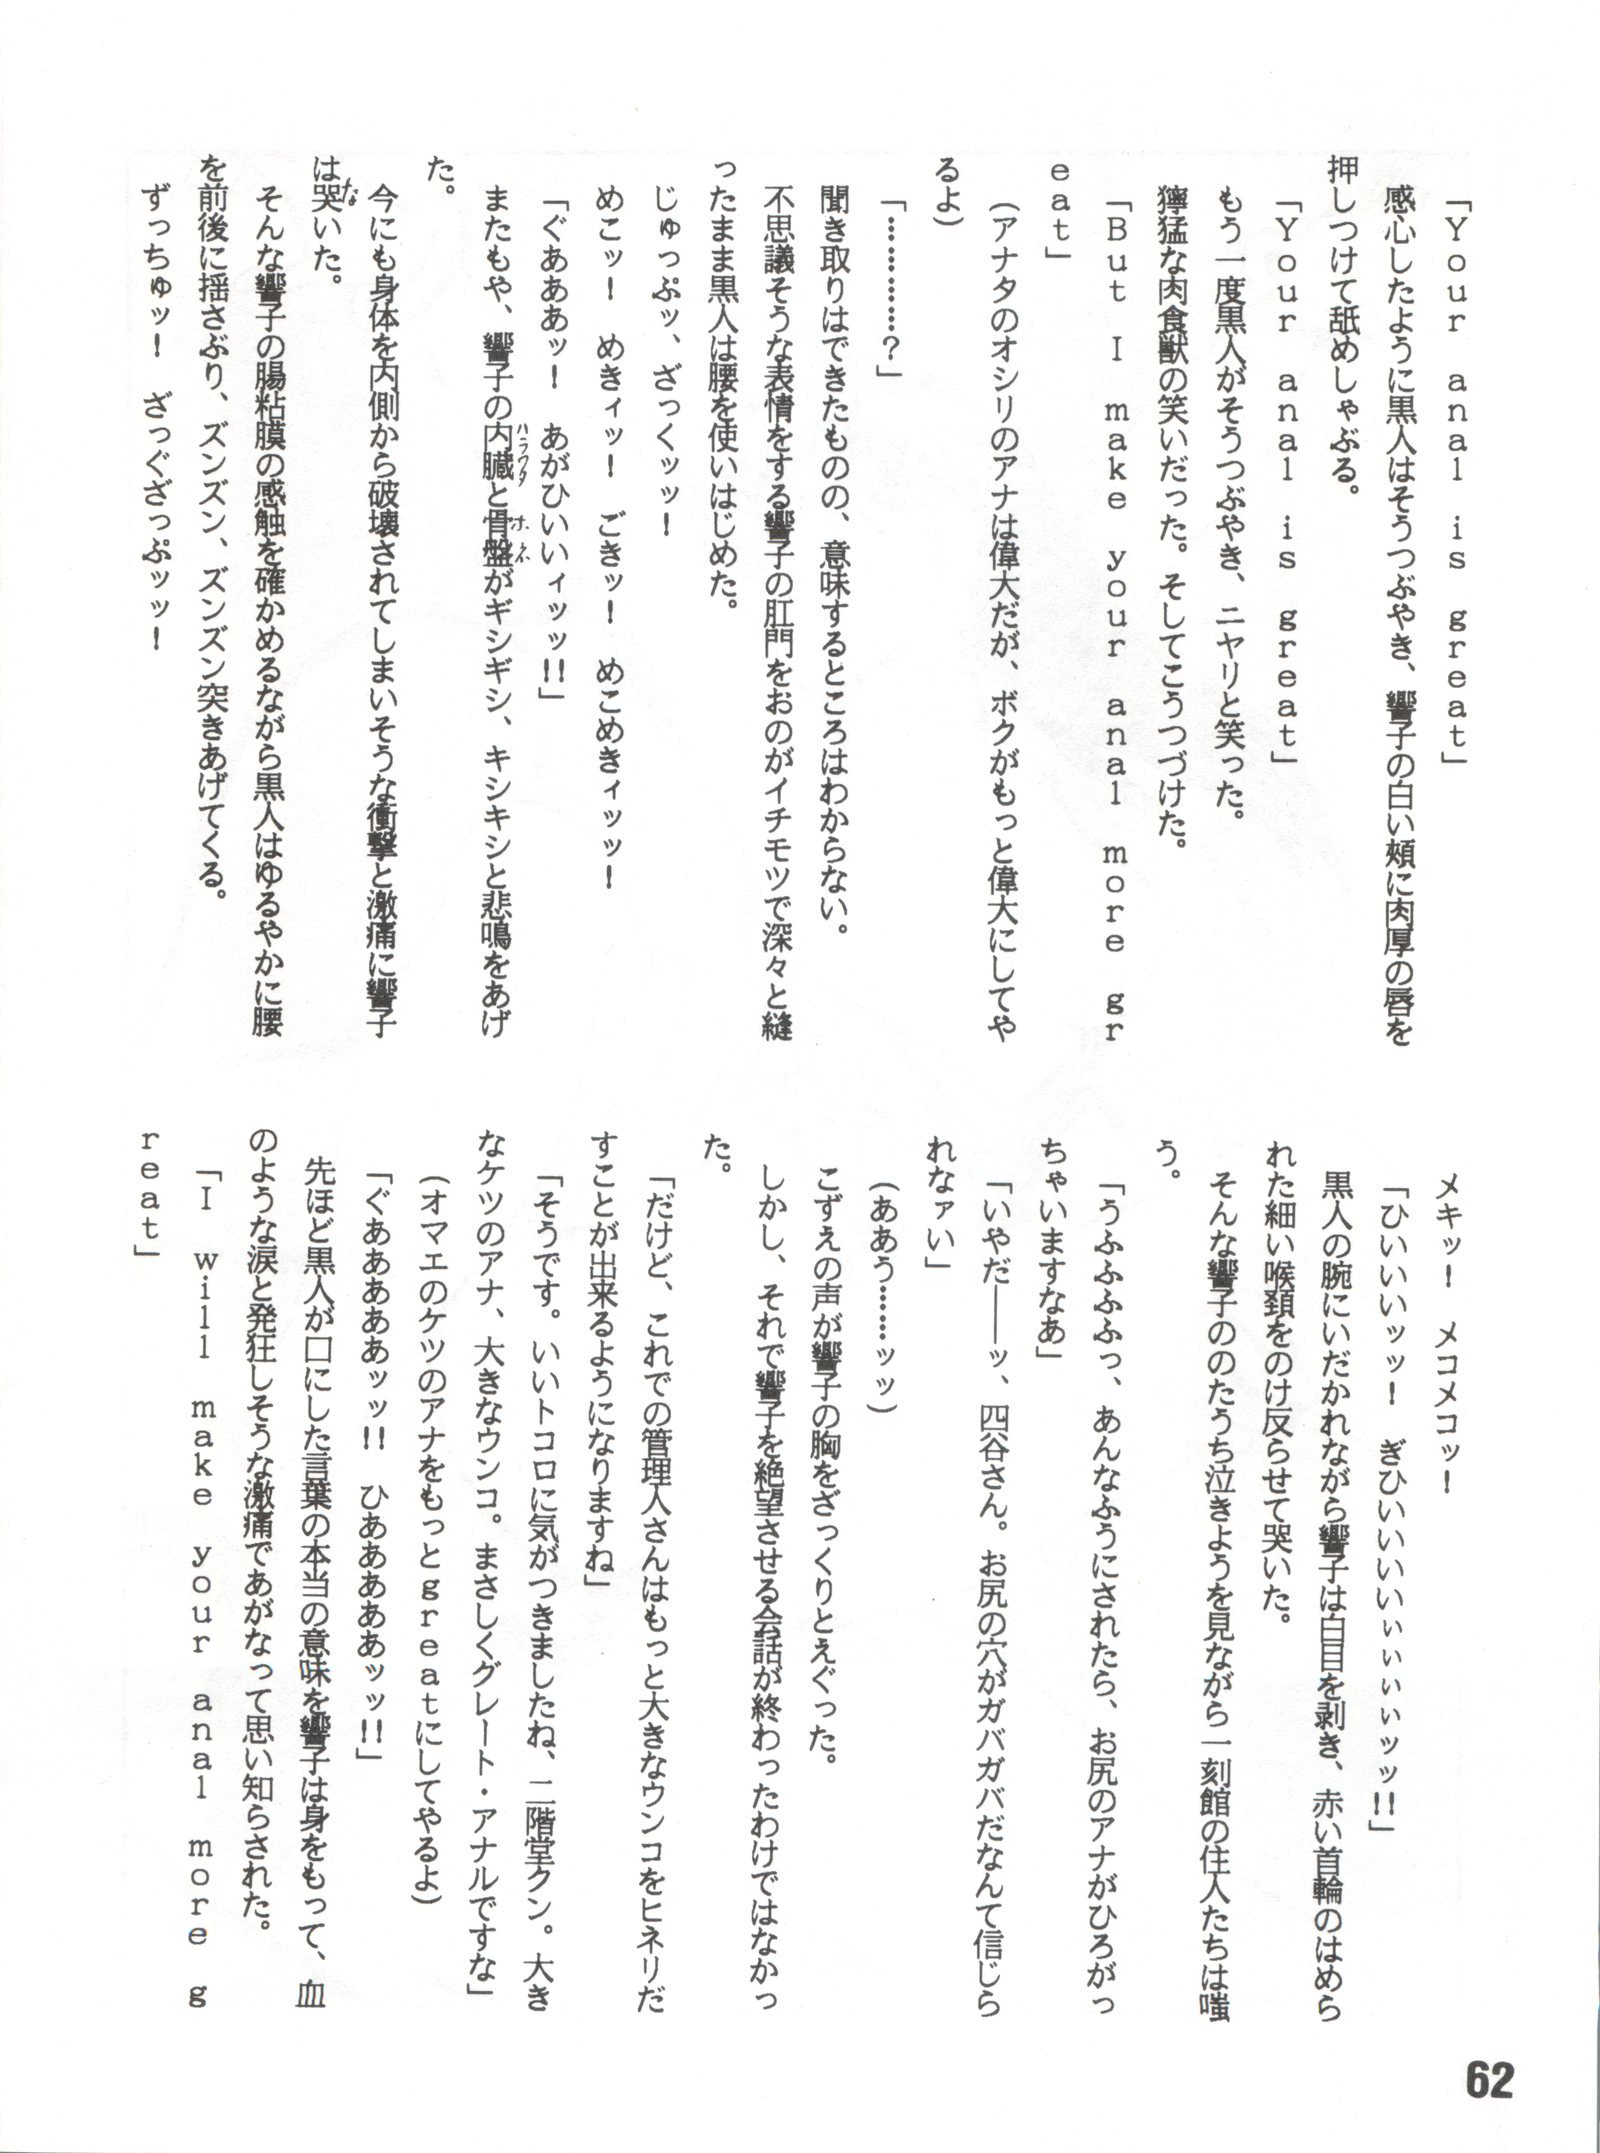 「Ｙｏｕｒ　ａｎａｌ　ｉｓ　ｇｒｅａｔ」
感心したように黒人はそうつぶやき、響子の白い頬に肉厚の唇を
押しつけて舐めしゃぶる。
「Ｙｏｕｒ　ａｎａｌ　ｉｓ　ｇｒｅａｔ」
もう一度黒人がそうつぶやき、ニヤリと笑った。
獰猛な肉食獣の笑いだった。そしてこうつづけた。
「Ｂｕｔ　Ｉ　ｍａｋｅ　ｙｏｕｒ　ａｎａｌ　ｍｏｒｅ　ｇｒ
ｅａｔ」
（アナタのオシリのアナは偉大だが、ボクがもっと偉大にしてや
るよ）
「…………？」
聞き取りはできたものの、意味するところはわからない。
不思議そうな表情をする響子の肛門をおのがイチモツで深々と縫
ったまま黒人は腰を使いはじめた。
じゅっぷッ、ざっくッッ！
めこッ！　めきィッ！　ごきッ！　めこめきィッッ！
「ぐあああッ！　あがひいいィッッ!!」
またもや、響子の内臓と骨盤がギシギシ、キシキシと悲鳴をあげ
ハラワタ
ホネ
た。
今にも身体を内側から破壊されてしまいそうな衝撃と激痛に響子
は哭いた。
な
そんな響子の腸粘膜の感触を確かめるながら黒人はゆるやかに腰
を前後に揺さぶり、ズンズン、ズンズン突きあげてくる。
ずっちゅッ！　ざっぐざっぷッッ！
メキッ！　メコメコッ！
「ひいいいッッ！　ぎひいいいいぃぃぃぃッッ!!」
黒人の腕にいだかれながら響子は白目を剥き、赤い首輪のはめら
れた細い喉頚をのけ反らせて哭いた。
そんな響子ののたうち泣きようを見ながら一刻館の住人たちは嗤
う。
「うふふふふっ、あんなふうにされたら、お尻のアナがひろがっ
ちゃいますなあ」
「いやだ――ッ、四谷さん。お尻の穴がガバガバだなんて信じら
れなァい」
（ああう……ッッ）
こずえの声が響子の胸をざっくりとえぐった。
しかし、それで響子を絶望させる会話が終わったわけではなかっ
た。
「だけど、これでの管理人さんはもっと大きなウンコをヒネリだ
すことが出来るようになりますね」
「そうです。いいトコロに気がつきましたね、二階堂クン。大き
なケツのアナ、大きなウンコ。まさしくグレート・アナルですな」
（オマエのケツのアナをもっとｇｒｅａｔにしてやるよ）
「ぐあああああッッ!!　ひあああああッッ!!」
先ほど黒人が口にした言葉の本当の意味を響子は身をもって、血
のような涙と発狂しそうな激痛であがなって思い知らされた。
「Ｉ　ｗｉｌｌ　ｍａｋｅ　ｙｏｕｒ　ａｎａｌ　ｍｏｒｅ　ｇ
ｒｅａｔ」
62